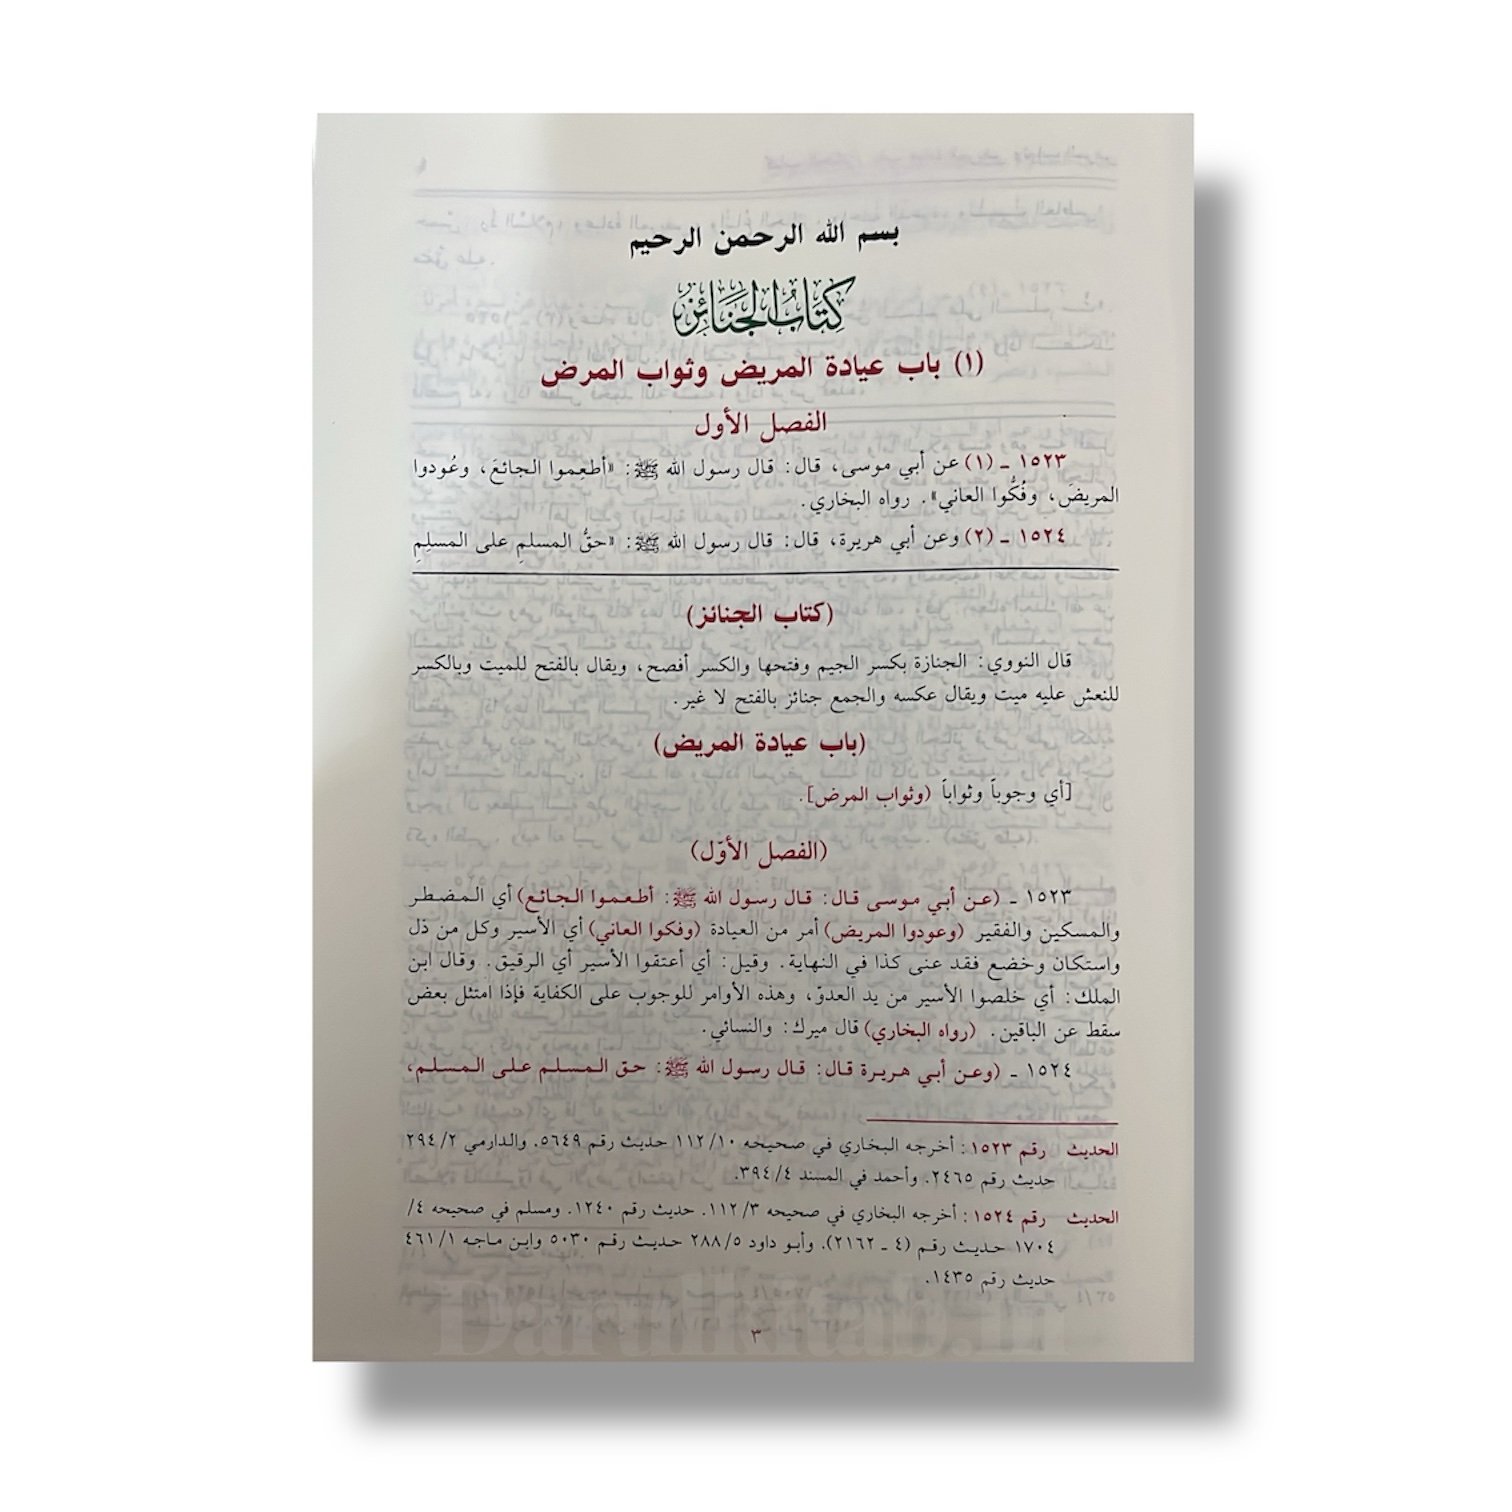 بسم الله الرحمن الرحيم
كِتَابُ الجَنَائِز
(١) باب عيادة المريض وثواب المرض
الفصل الأول
١٥٢٣ ـ (١) عن أبي موسى، قال: قال رسول الله ﷺ: «أطعِموا الجائعَ، وعُودوا
المريضَ، وفُكُّوا العاني». رواه البخاري.
١٥٢٤ ـ (٢) وعن أبي هريرة، قال: قال رسول الله ﷺ: «حقُّ المسلمِ على المسلِمِ
(كتاب الجنائز)
قال النووي: الجنازة بكسر الجيم وفتحها والكسر أفصح، ويقال بالفتح للميت وبالكسر
للنعش عليه ميت ويقال عكسه والجمع جنائز بالفتح لا غير.
(باب عيادة المريض)
[أي وجوباً وثواباً (وثواب المرض].
(الفصل الأوّل)
١٥٢٣ ـ (عن أبي موسى قال: قال رسول الله ﷺ: أطعموا الجائع) أي المضطر
والمسكين والفقير (وعودوا المريض) أمر من العيادة (وفكوا العاني) أي الأسير وكل من ذل
واستكان وخضع فقد عنى كذا في النهاية. وقيل: أي أعتقوا الأسير أي الرقيق. وقال ابن
الملك: أي خلصوا الأسير من يد العدوّ، وهذه الأوامر للوجوب على الكفاية فإذا امتثل بعض
سقط عن الباقين. (رواه البخاري) قال ميرك: والنسائي.
١٥٢٤ ـ (وعن أبي هريرة قال: قال رسول الله ﷺ: حق المسلم على المسلم،
الحديث رقم ١٥٢٣: أخرجه البخاري في صحيحه ١١٢/١٠ حديث رقم ٥٦٤٩. والدارمي ٢٩٤/٢
حديث رقم ٢٤٦٥. وأحمد في المسند ٣٩٤/٤.
الحديث رقم ١٥٢٤: أخرجه البخاري في صحيحه ١١٢/٣. حديث رقم ١٢٤٠. ومسلم في صحيحه ٤/
١٧٠٤ حديث رقم (٤ ـ ٢١٦٢). وأبو داود ٢٨٨/٥ حديث رقم ٥٠٣٠ وابن ماجه ٤٦١/١
حديث رقم ١٤٣٥.
Darulkitab.in
٣